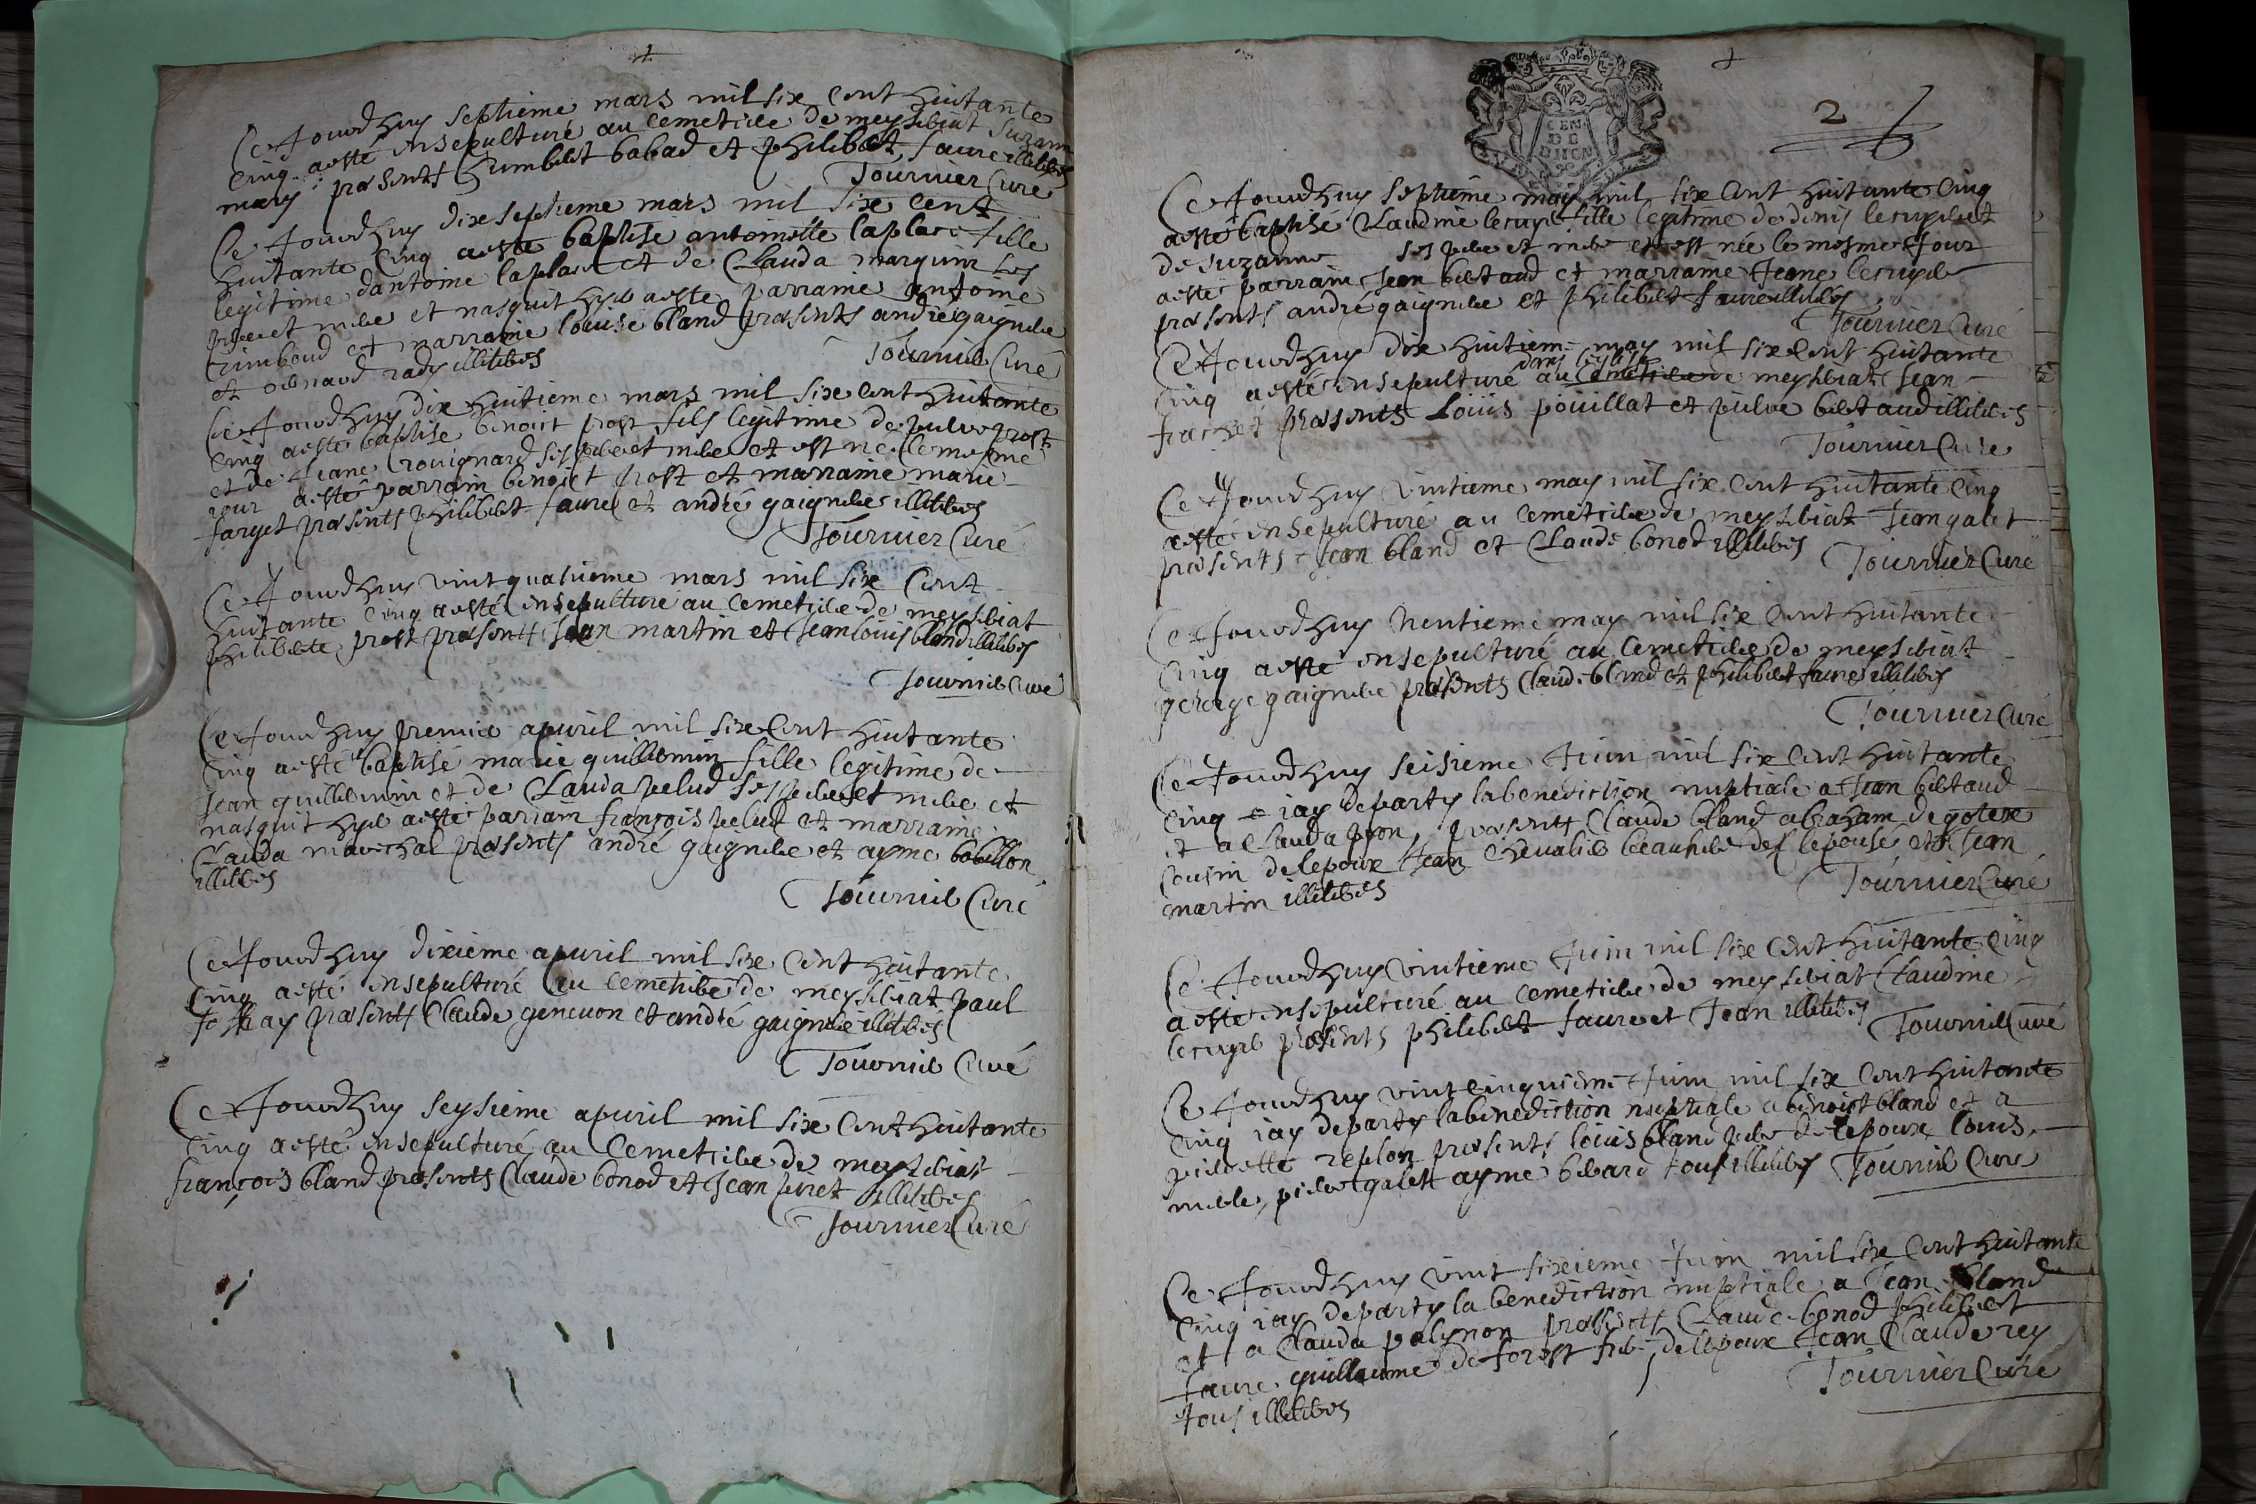 Ce Jourdhuy septieme mars mil six cent huitante
cinq a esté ensepulturé au cemetiere de meyseriat Suzanne
mary presents humbert babad et philibert faure illiteres
Tournier Curé
Ce Jourdhuy dix septieme mars mil six cent
huitante cinq a esté baptisé antoinette laplace fille
legitime dantoine laplace et de Clauda marguin ses
pere et mere et nasquit hyer a esté parrain antoine
et marraine louise bland presents andré gaignere
et illiteres
Tournier Curé
Ce Jourdhuy dix huitieme mars mil six cent huitante
cinq a esté baptisé benoist prost fils legitime de pierre prost
et de Jeane rouignard ses pere et mere et est né le mesme
jour a esté parrain benoist prost et marraine marie
farget presents philibert faure et andré gaignere illiteres
Tournier Curé
Ce Jourdhuy vint quatrieme mars mil six cent
huitante cinq a esté ensepulturé au cemetiere de meyseriat
philiberte prost presents Jean martin et Jean louis bland illiteres
Tournier Curé
Ce Jourdhuy premier apuril mil six cent huitante
cinq a esté baptisé marie guillermin fille legitime de
Jean guillermin et de Clauda pelud ses pere et mere et
nasquit hyer a esté parrain françois pelud et marraine
Clauda marechal presents andré gaignere et ayme bobillon
illiteres
Tournier Curé
Ce Jourdhuy dixieme apuril mil six cent huitante
cinq a esté ensepulturé au cemetiere de meyseriat paul
presents Claude geneuon et andré gaignere illiteres
Tournier Curé
Ce Jourdhuy seysieme apuril mil six cent huitante
cinq a esté ensepulturé au cemetiere de meyseriat
françois bland presents Claude bonod et Jean illiteres
Tournier Curé
2
GEN
DE
DIION
Ce Jourdhuy septieme may mil six cent huitante cinq
a esté baptisé Claudine fille legitime de denis
de suzanne ses pere et mere et est née le mesme jour
a esté parrain Jean bertaud et marraine Jeane
presents andré gaignere et philibert faure illiteres
Tournier Curé
Ce Jourdhuy dix huitieme may mil six cent huitante
dans leglise
cinq a esté ensepulturé au cemetiere de meyseriat Jean
presents Louis pouillat et pierre bertaud illiteres
Tournier Curé
Ce Jourdhuy vintieme may mil six cent huitante cinq
a esté ensepulturé au cemetiere de meyseriat Jean galet
presents Jean bland et Claude bonod illiteres
Tournier Curé
Ce Jourdhuy trentieme may mil six cent huitante
cinq a esté ensepulturé au cemetiere de meyseriat
george gaignere presents Claude bland et philibert faure illiteres
Tournier Curé
Ce Jourdhuy seisieme Juin mil six cent huitante
cinq iay departy la benediction nuptiale a Jean bertaud
et a Clauda pron presents Claude bland abraham degotex
cousin de lepoux Jean Chevalier beaufrere de lepouse et Jean
martin illiteres
Tournier Curé
Ce Jourdhuy vintieme Juin mil six cent huitante cinq
a esté ensepulturé au cemetiere de meyseriat Claudine
presents philibert faure et Jean illiteres
Tournier Curé
Ce Jourdhuy vint cinquieme Juin mil six cent huitante
cinq iay departy la benediction nuptiale a benoist bland et a
pierrette replon presents louis bland pere de lepoux louis
pierre galet ayme berard tous illiteres Tournier Curé
Ce Jourdhuy vint sixieme Juin mil six cent huitante
cinq iay departy la benediction nuptiale a Jean bland
et a Clauda presents Claude bonod philibert
faure guillaume de forest frere de lepoux Jean Claude rey
tous illiteres
Tournier Curé